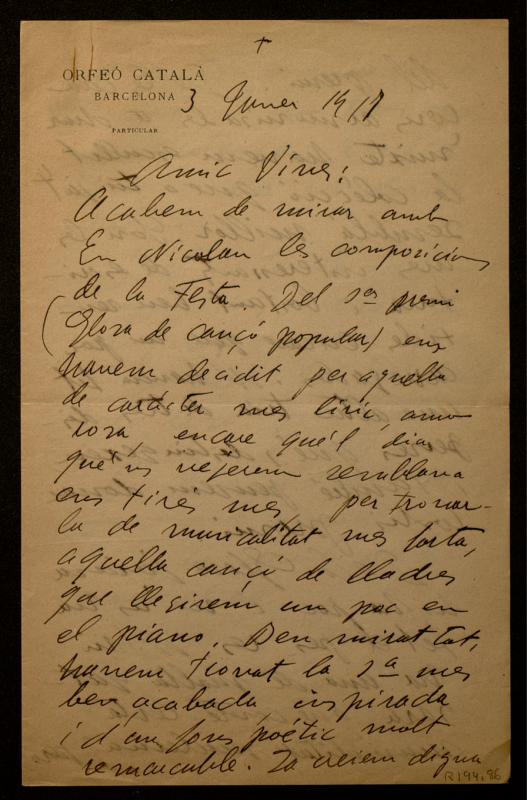 +
ORFEÓ CATALÀ
BARCELONA
PARTICULAR
3 Janer 1911
Amic Vives:
Acabem de mirar amb
En Nicolau les composicions
de la Festa. Del 1er premi
(Glosa de cançó popular) ens
havem decidit per aquella
de caràcter mes liric, amo
rosa, encare qué'l dia
que'ns vejerem semblava
ens tires mes per trovar-
la de musicalitat mes forta,
aquella cançó de lladres
que llegirem un poc en
el piano. Ben mirat tot,
havem trovat la 1a mes
ben acabada, inspirada
i d'un fons poétic molt
remarcable. La creiem digna
R194,86